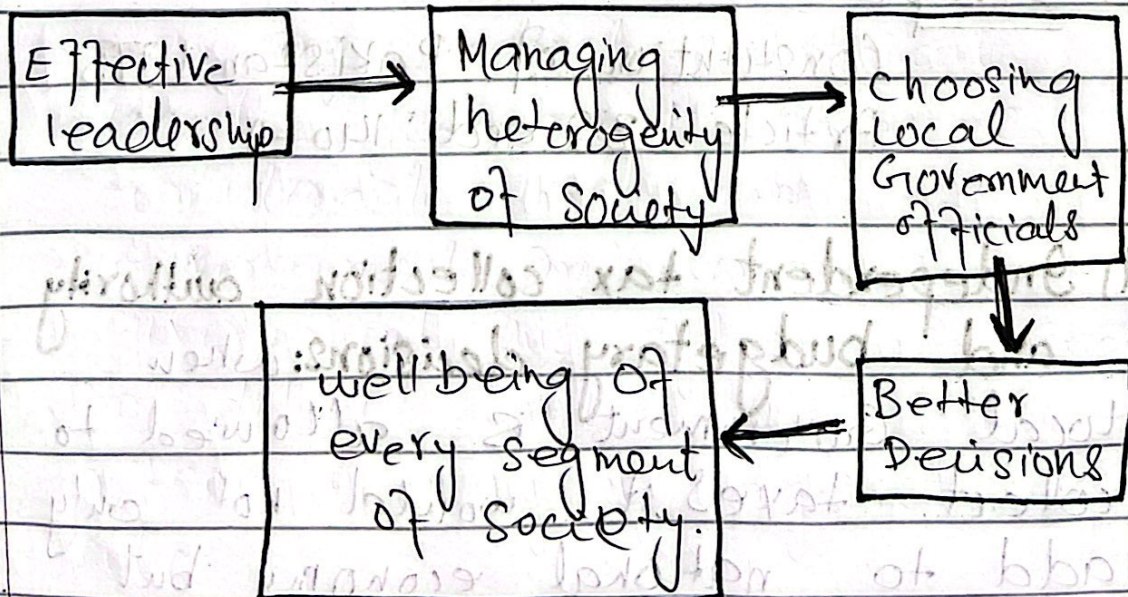 Effective
leadership
Managing
heterogenity
of Society
choosing
Local
Government
officials
Better
Decisions
wellbeing of
every segment
of society.